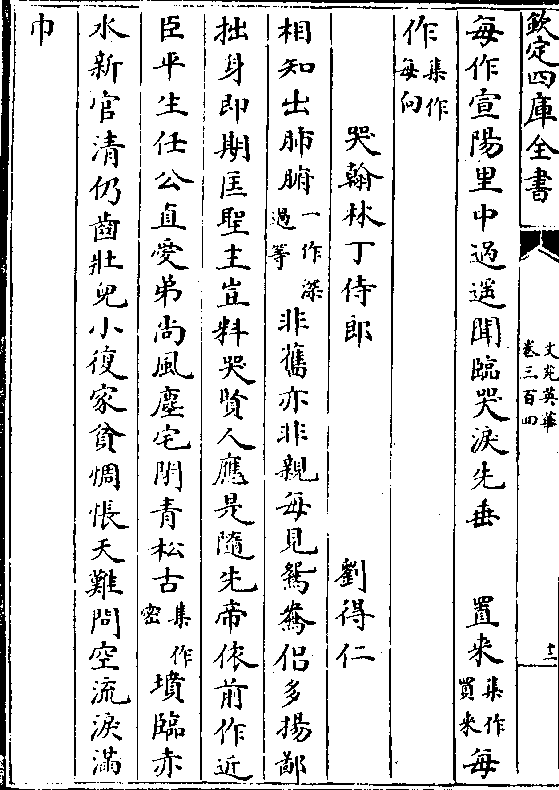 欽定四庫全書
文苑英華
卷三百四
十二
每作宣陽里中過遥聞臨哭淚先垂　置來集作買來每
作集作每向
哭翰林丁侍郎　劉得仁
相知出肺腑一作深過等非舊亦非親每見鴛鸞侣多揚鄙
拙身即期匡聖主豈料哭賢人應是隨先帝依前作近
臣平生任公直愛弟尚風塵宅閉青松古集作密墳臨赤
水新官清仍齒壯兒小復家貧惆悵天難問空流淚滿
巾